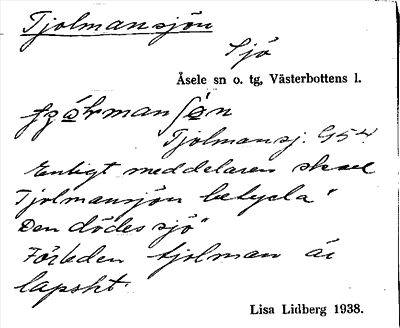 Tjolmansjön
Sjö
Åsele sn o. tg, Västerbottens l.
Tjolmansj. G54
Enligt meddelaren skall
Tjolmansjön betyda "
Den dödes sjö"
Förleden tjolman är
lapskt.
Lisa Lidberg 1938.